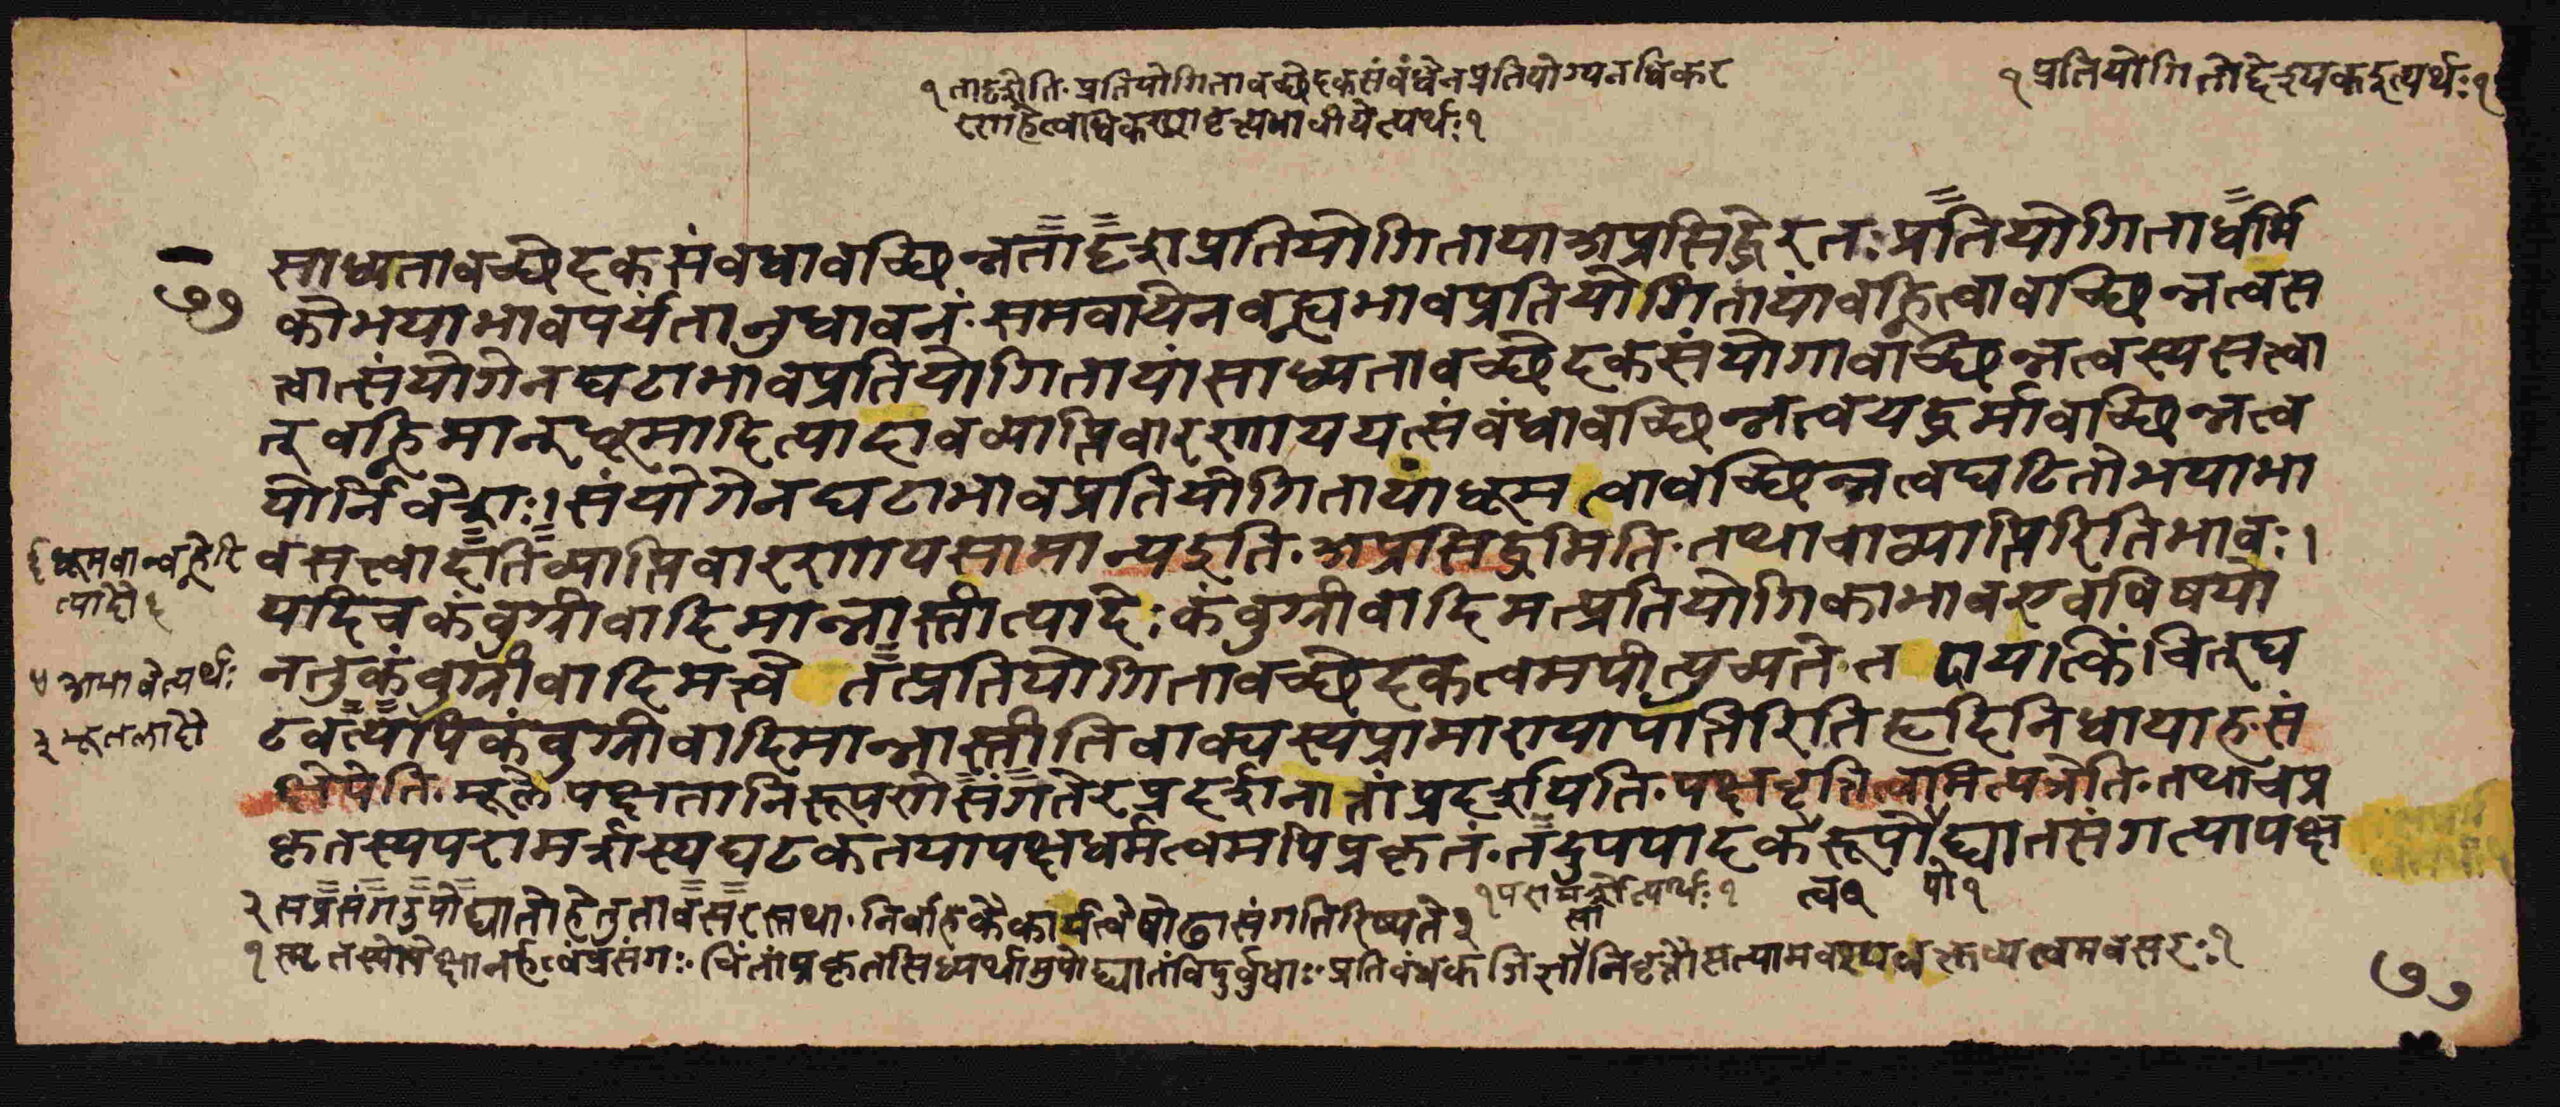 १ तादृशेति. प्रतियोगितावच्छेदकसंबंधेन प्रतियोग्यनधिकर
णहेत्वधिकरणवृत्त्यभावीयेत्यर्थः १
१ प्रतियोगितोद्देश्यकइत्यर्थः १
साध्यतावच्छेदकसंवधावच्छिन्नतादृशप्रतियोगिताया अप्रसिद्धेरतः प्रतियोगिताधर्मि
७७ कोभयाभावपर्यंतानुधावनं. समवायेन वह्न्यभावप्रतियोगितायां वह्नित्वावच्छिन्नत्वस
त्वात्संयोगेन घटाभावप्रतियोगितायां साध्यतावच्छेदकसंयोगावच्छिन्नत्वस्य सत्वा
त् वह्निमान् धूमादित्यादावव्याप्तिवारणाय यत्संबंधावच्छिन्नत्वयद्धर्मावच्छिन्नत्व
योर्निवेशः। संयोगेन घटाभावप्रतियोगितायां धूमत्वावच्छिन्नत्वघटितोभयाभा
वसत्त्वादतिव्याप्तिवारणाय सामान्य इति. अप्रसिद्धमिति. तथा चाव्याप्तिरिति भावः।
यदि च कंवुग्रीवादिमान्नास्तीत्यादेः कंवुग्रीवादिमत्प्रतियोगिकाभाव एव विषयो
न तु कंवुग्रीवादिमत्त्वे तत्प्रतियोगितावच्छेदकत्वमपीत्युच्यते. तदा यत्किंचित् घ
टवत्यपि कंवुग्रीवादिमान्नास्तीति वाक्यस्य प्रामाण्यापत्तिरिति हृदि निधायाह. सं
क्षेपेति. मूले पक्षतानिरूपणे संगतेरप्रदर्शनात्तां प्रदर्शयति. पक्षवृत्तित्वमित्यत्रेति. तथा च प्र
कृतस्य परामर्शस्य घटकतया पक्षधर्मत्वमपि प्रकृतं. तदुपपादकरूपोद्घातसंगत्या पक्ष
धूमवान्वह्नेरि
त्यादौ १
४ अभावेत्यर्थः
३ भूतलादौ
१ परामर्शेत्यर्थः १
त्व २
पो १
२ सप्रसंग उपोद्घातो हेतुतावसरस्तथा. निर्वाहकैककार्यत्वे षोढा संगतिरिष्यते २
१ स्मृतस्योपेक्षानर्हत्वं प्रसंगः. चिंतां प्रकृतसिध्यर्थामुपोद्घातं विदुर्बुधाः. प्रतिबंधकजिज्ञासानिवृत्तौ सत्यामवश्यवक्तव्यत्वमवसरः १
७७